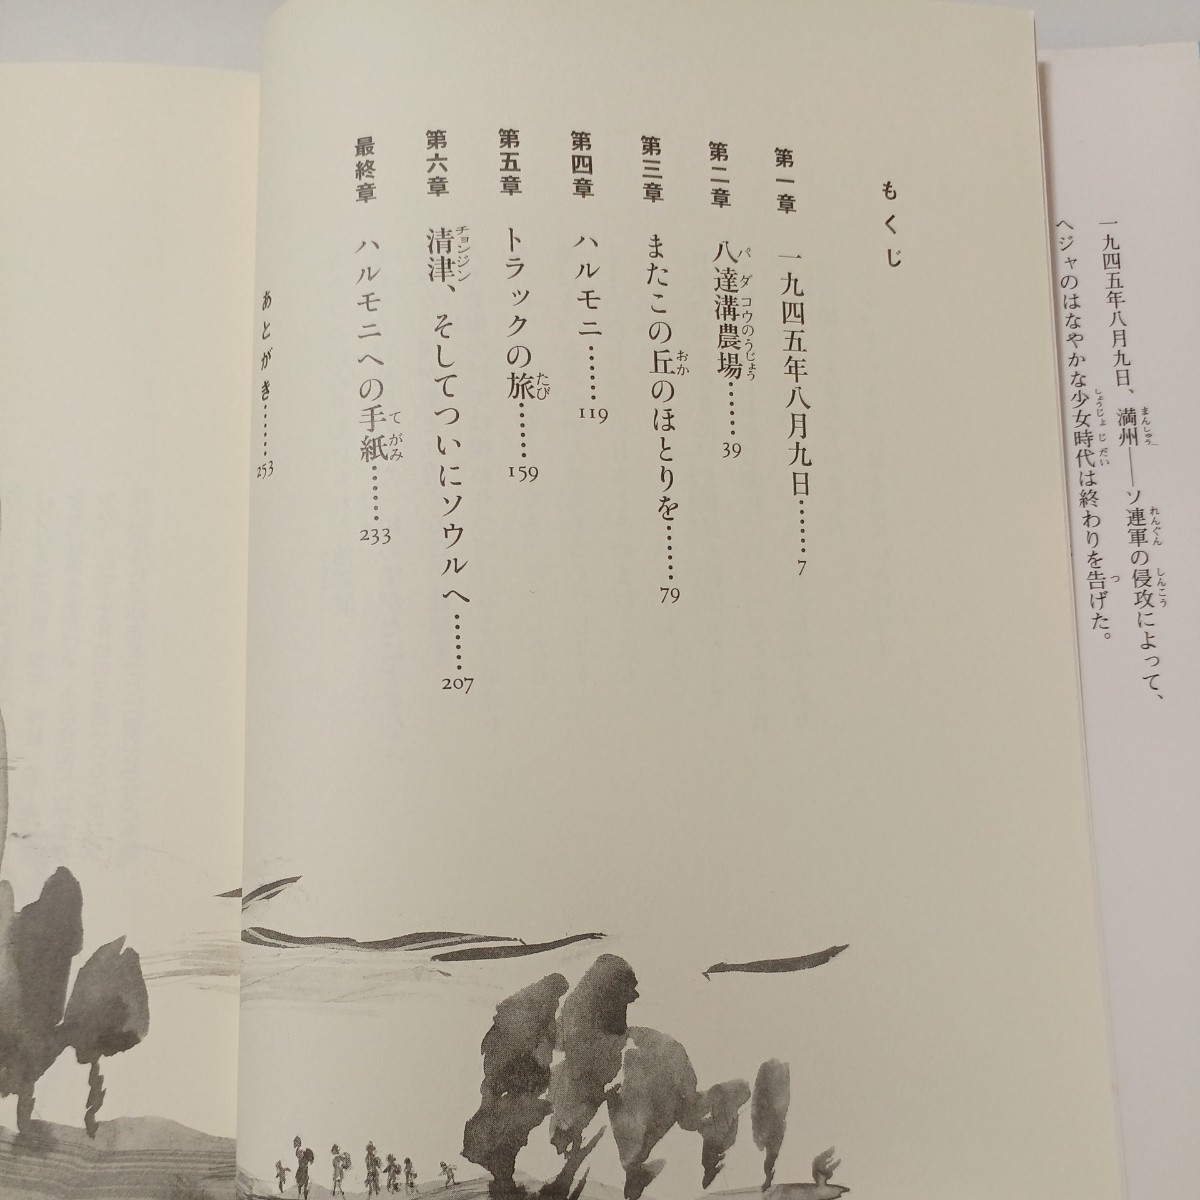 一九四五年八月九日、満州──ソ連軍の侵攻によって、
ヘジャのはなやかな少女時代は終わりを告げた。
もくじ
第一章 一九四五年八月九日……7
第二章 八達溝農場……39
第三章 またこの丘のほとりを……79
第四章 ハルモニ……119
第五章 トラックの旅……159
第六章 清津、そしてついにソウルへ……207
最終章 ハルモニへの手紙……233
あとがき……253